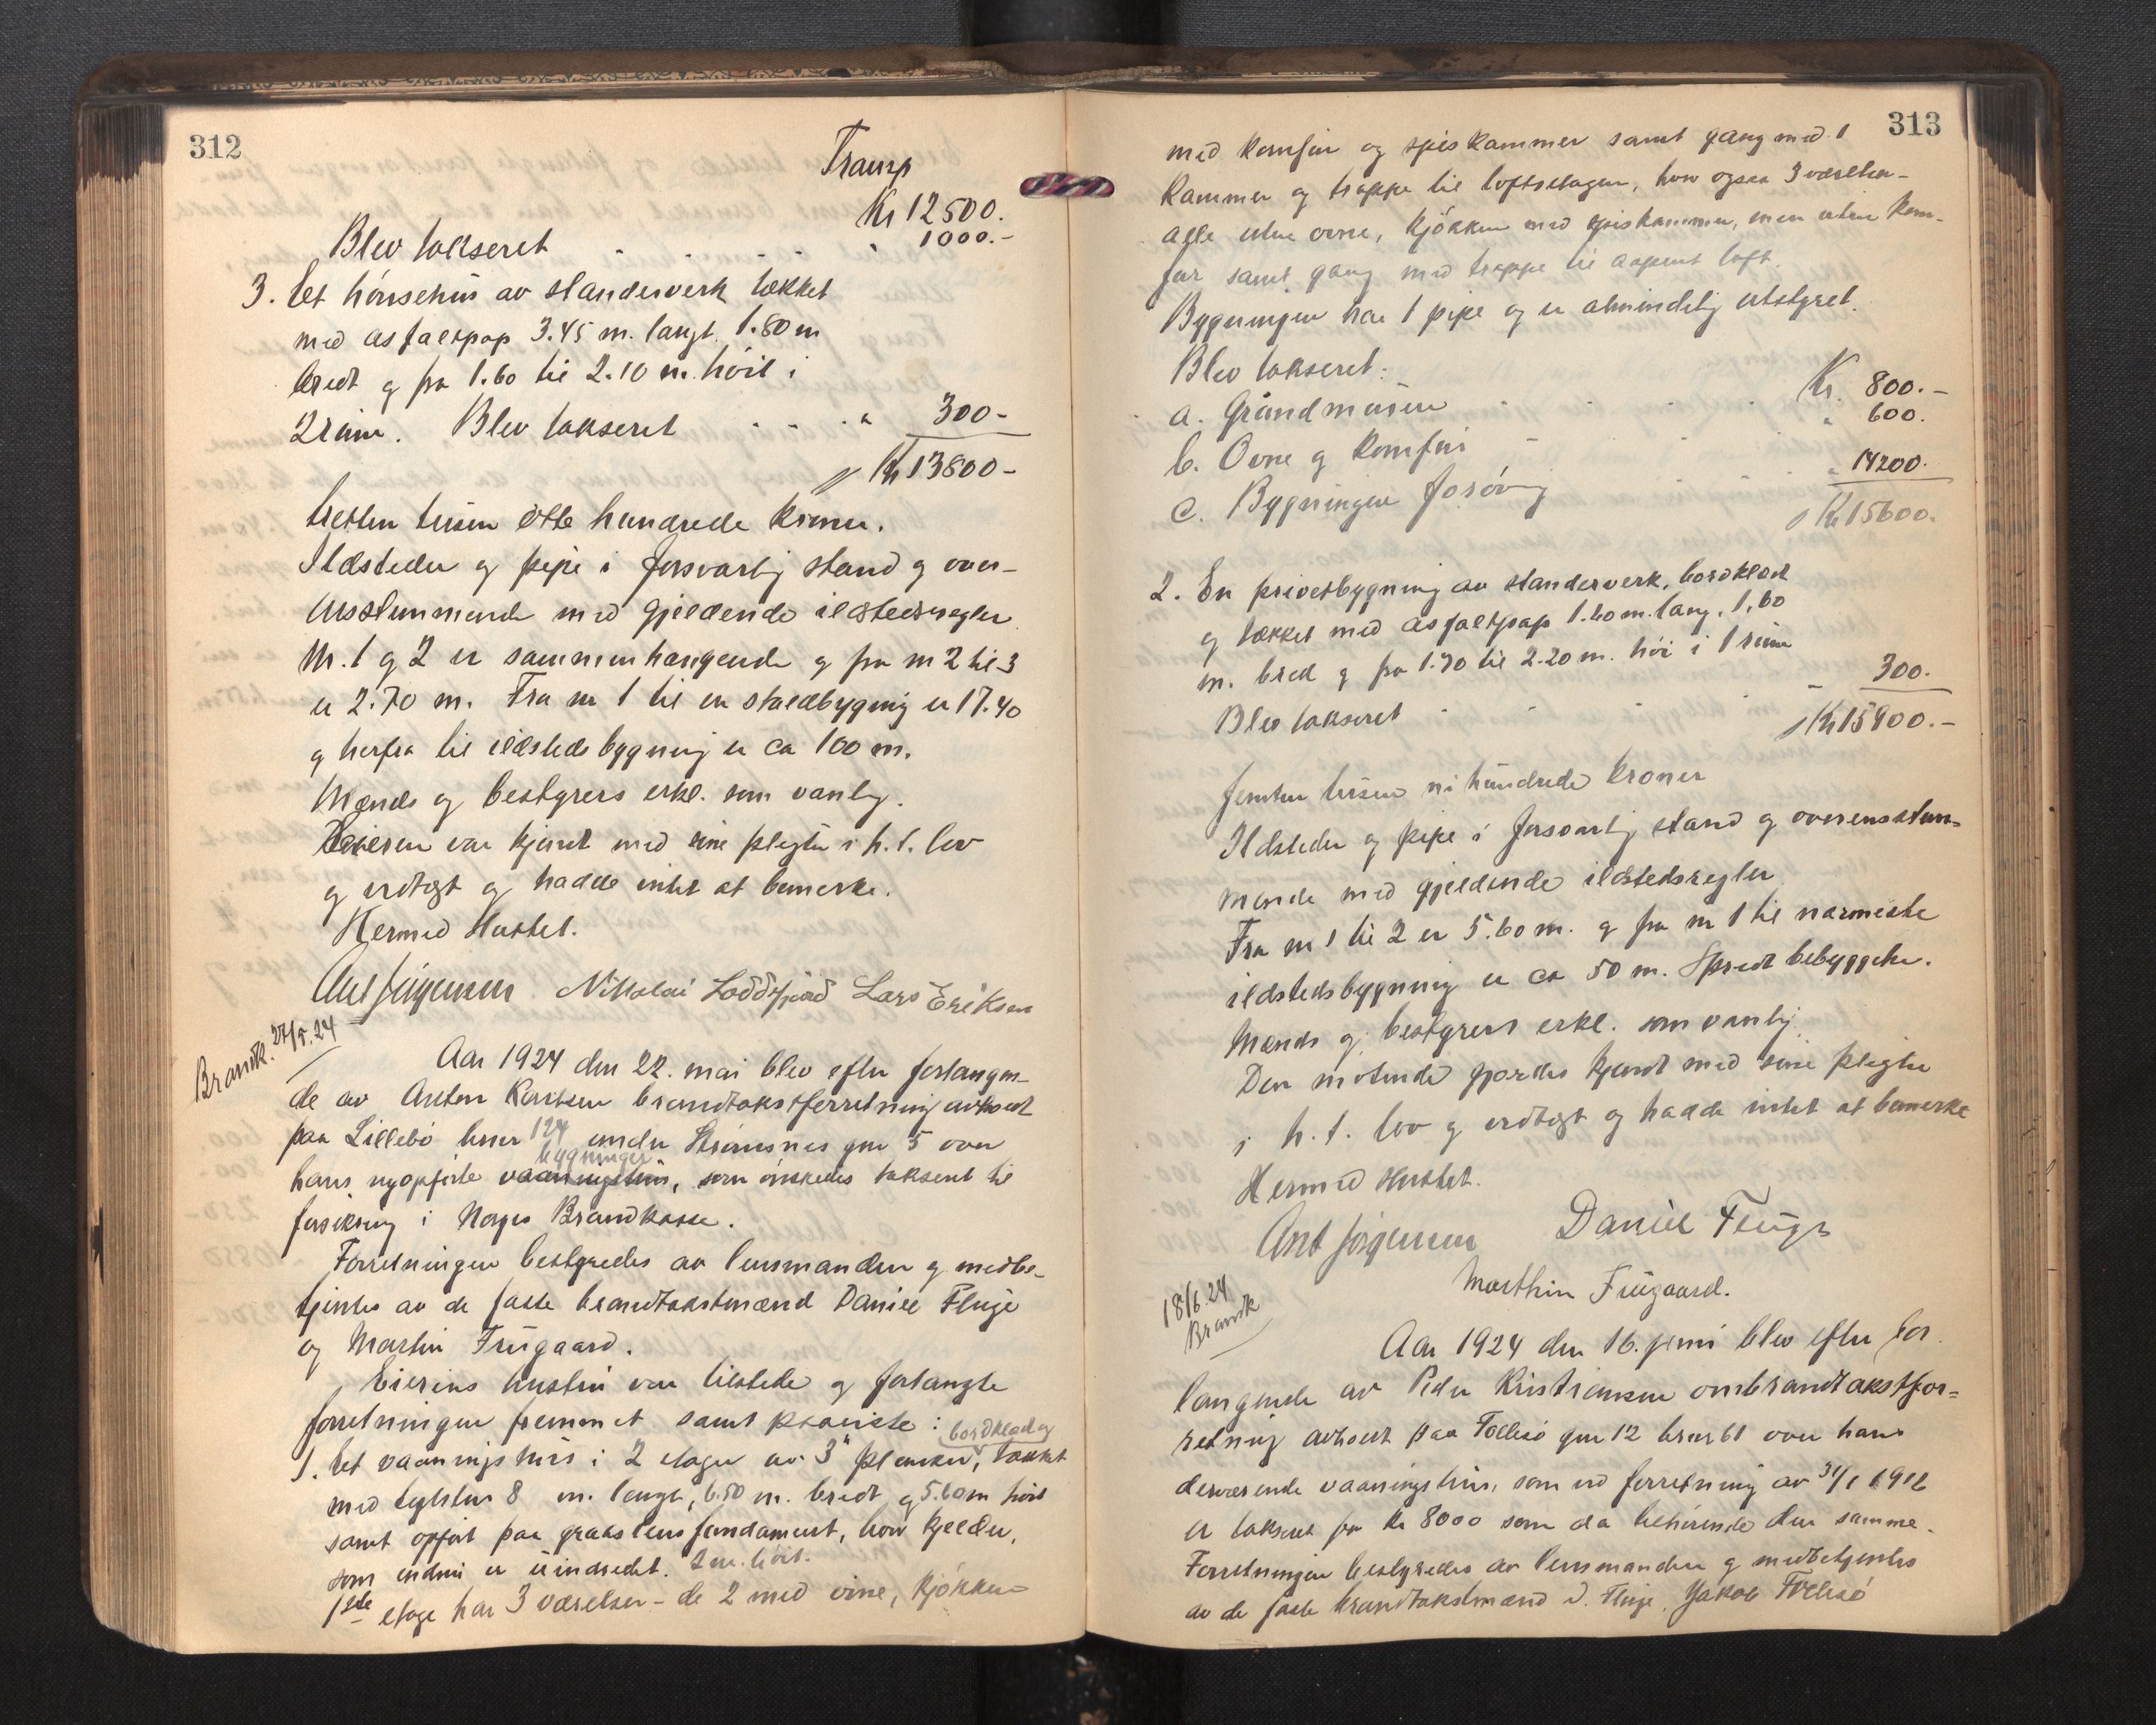 312
Transp Kr 12500.
Blev takseret . . . . " 1000.-
3. Et hönsehus av standerverk tækket
med asfaltpap 3.45 m. langt 1.80 m
bredt og fra 1.60 til 2.10 m. höit i
2 rum. Blev takseret . . . " 300-
Kr 13800-
tretten tusen otte hundrede kroner.
Ildsteder og pipe i forsvarlig stand og over-
ensstemmende med gjeldende ildstedsregler
Nr. 1 og 2 er sammenhængende og fra nr 2 til 3
er 2.70 m. Fra nr 1 til en staldbygning er 17.40
og herfra til ildstedsbygning er ca 100 m.
Mænds og bestyrers erkl. som vanlig.
Eieren var kjent med sine plegter i h. t. lov
og vedtægt og hadde intet at bemerke.
Hermed sluttet.
Ant Jörgensen Nikolai Loddefjord Lars Eriksen
Brandk. 27/5.24
Aar 1924 den 22. mai blev efter forlangen-
de av Anton Karlsen brandtakstforretning avholdt
paa Lillebö brnr 124 under Strusnes gnr 5 over
hans nyopförte vaaningshus, bygninger som önskedes takseret til
forsikring i Norges Brandkasse.
Forretningen bestyredes av lensmanden og medbe-
tjentes av de faste brandtakstmænd Daniel Fluge
og Martin Frugaard.
Eierens hustru var tilstede og forlangte
forretningen fremmet samt paaviste:
1. Et vaaningshus i 2 etager av 3" planker, bordklædt og tækket
med teglsten 8 m. langt, 6.50 m. bredt og 5.60 m höit
samt opfört paa graastensfundament, hvor kjelder,
som endnu er uindredet. 2 m. höit.
1ste etage har 3 værelser - de 2 med ovne, kjökken
313
med komfur og spiskammer samt gang med 1
kammer og trappe til loftsetagen, hvor ogsaa 3 værelser-
alle uten ovne, kjökken med spiskammer, men uten kom-
fur samt gang med trappe til aapent loft.
Bygningen har 1 pipe og er almindelig utstyret.
Blev takseret:
a. Grundmuren . . . . Kr. 800.-
b. Ovne og komfur - - - " 600.
c. Bygningen forövrig . . . " 14200.
Kr 15600.
2. En privetbygning av standerverk, bordklædt
og tækket med asfaltpap 1.60 m. lang, 1.60
m. bred og fra 1.70 til 2.20 m. höi i 1 rum
Blev takseret - - - - 300.
Kr 15900.-
femten tusen ni hundrede kroner
Ildsteder og pipe i forsvarlig stand og overensstem-
mende med gjeldende ildstedsregler
Fra nr 1 til 2 er 5.60 m. og fra nr 1 til nærmeste
ildstedsbygning er ca 50 m. Spredt bebyggelse.
Mænds og bestyrers erkl. som vanlig
Den mötende gjordes kjendt med sine plegter
i h. t. lov og vedtægt og hadde intet at bemerke
Hermed sluttet.
Ant Jörgensen Daniel Fluge
Marthin Frugaard.
18/6.24
Brandk
Aar 1924 den 16. juni blev efter for
langende av Peder Kristiansen ombrandtakstfor-
retning avholdt paa Follesö gnr 12 brnr 61 over hans
derværende vaaningshus, som ved forretning av 31/1 1912
er takseret for kr 8000 som da tilhörende den samme.
Forretningen bestyredes av lensmanden og medbetjentes
av de faste brandtakstmænd D. Fluge, Jakob Follesö